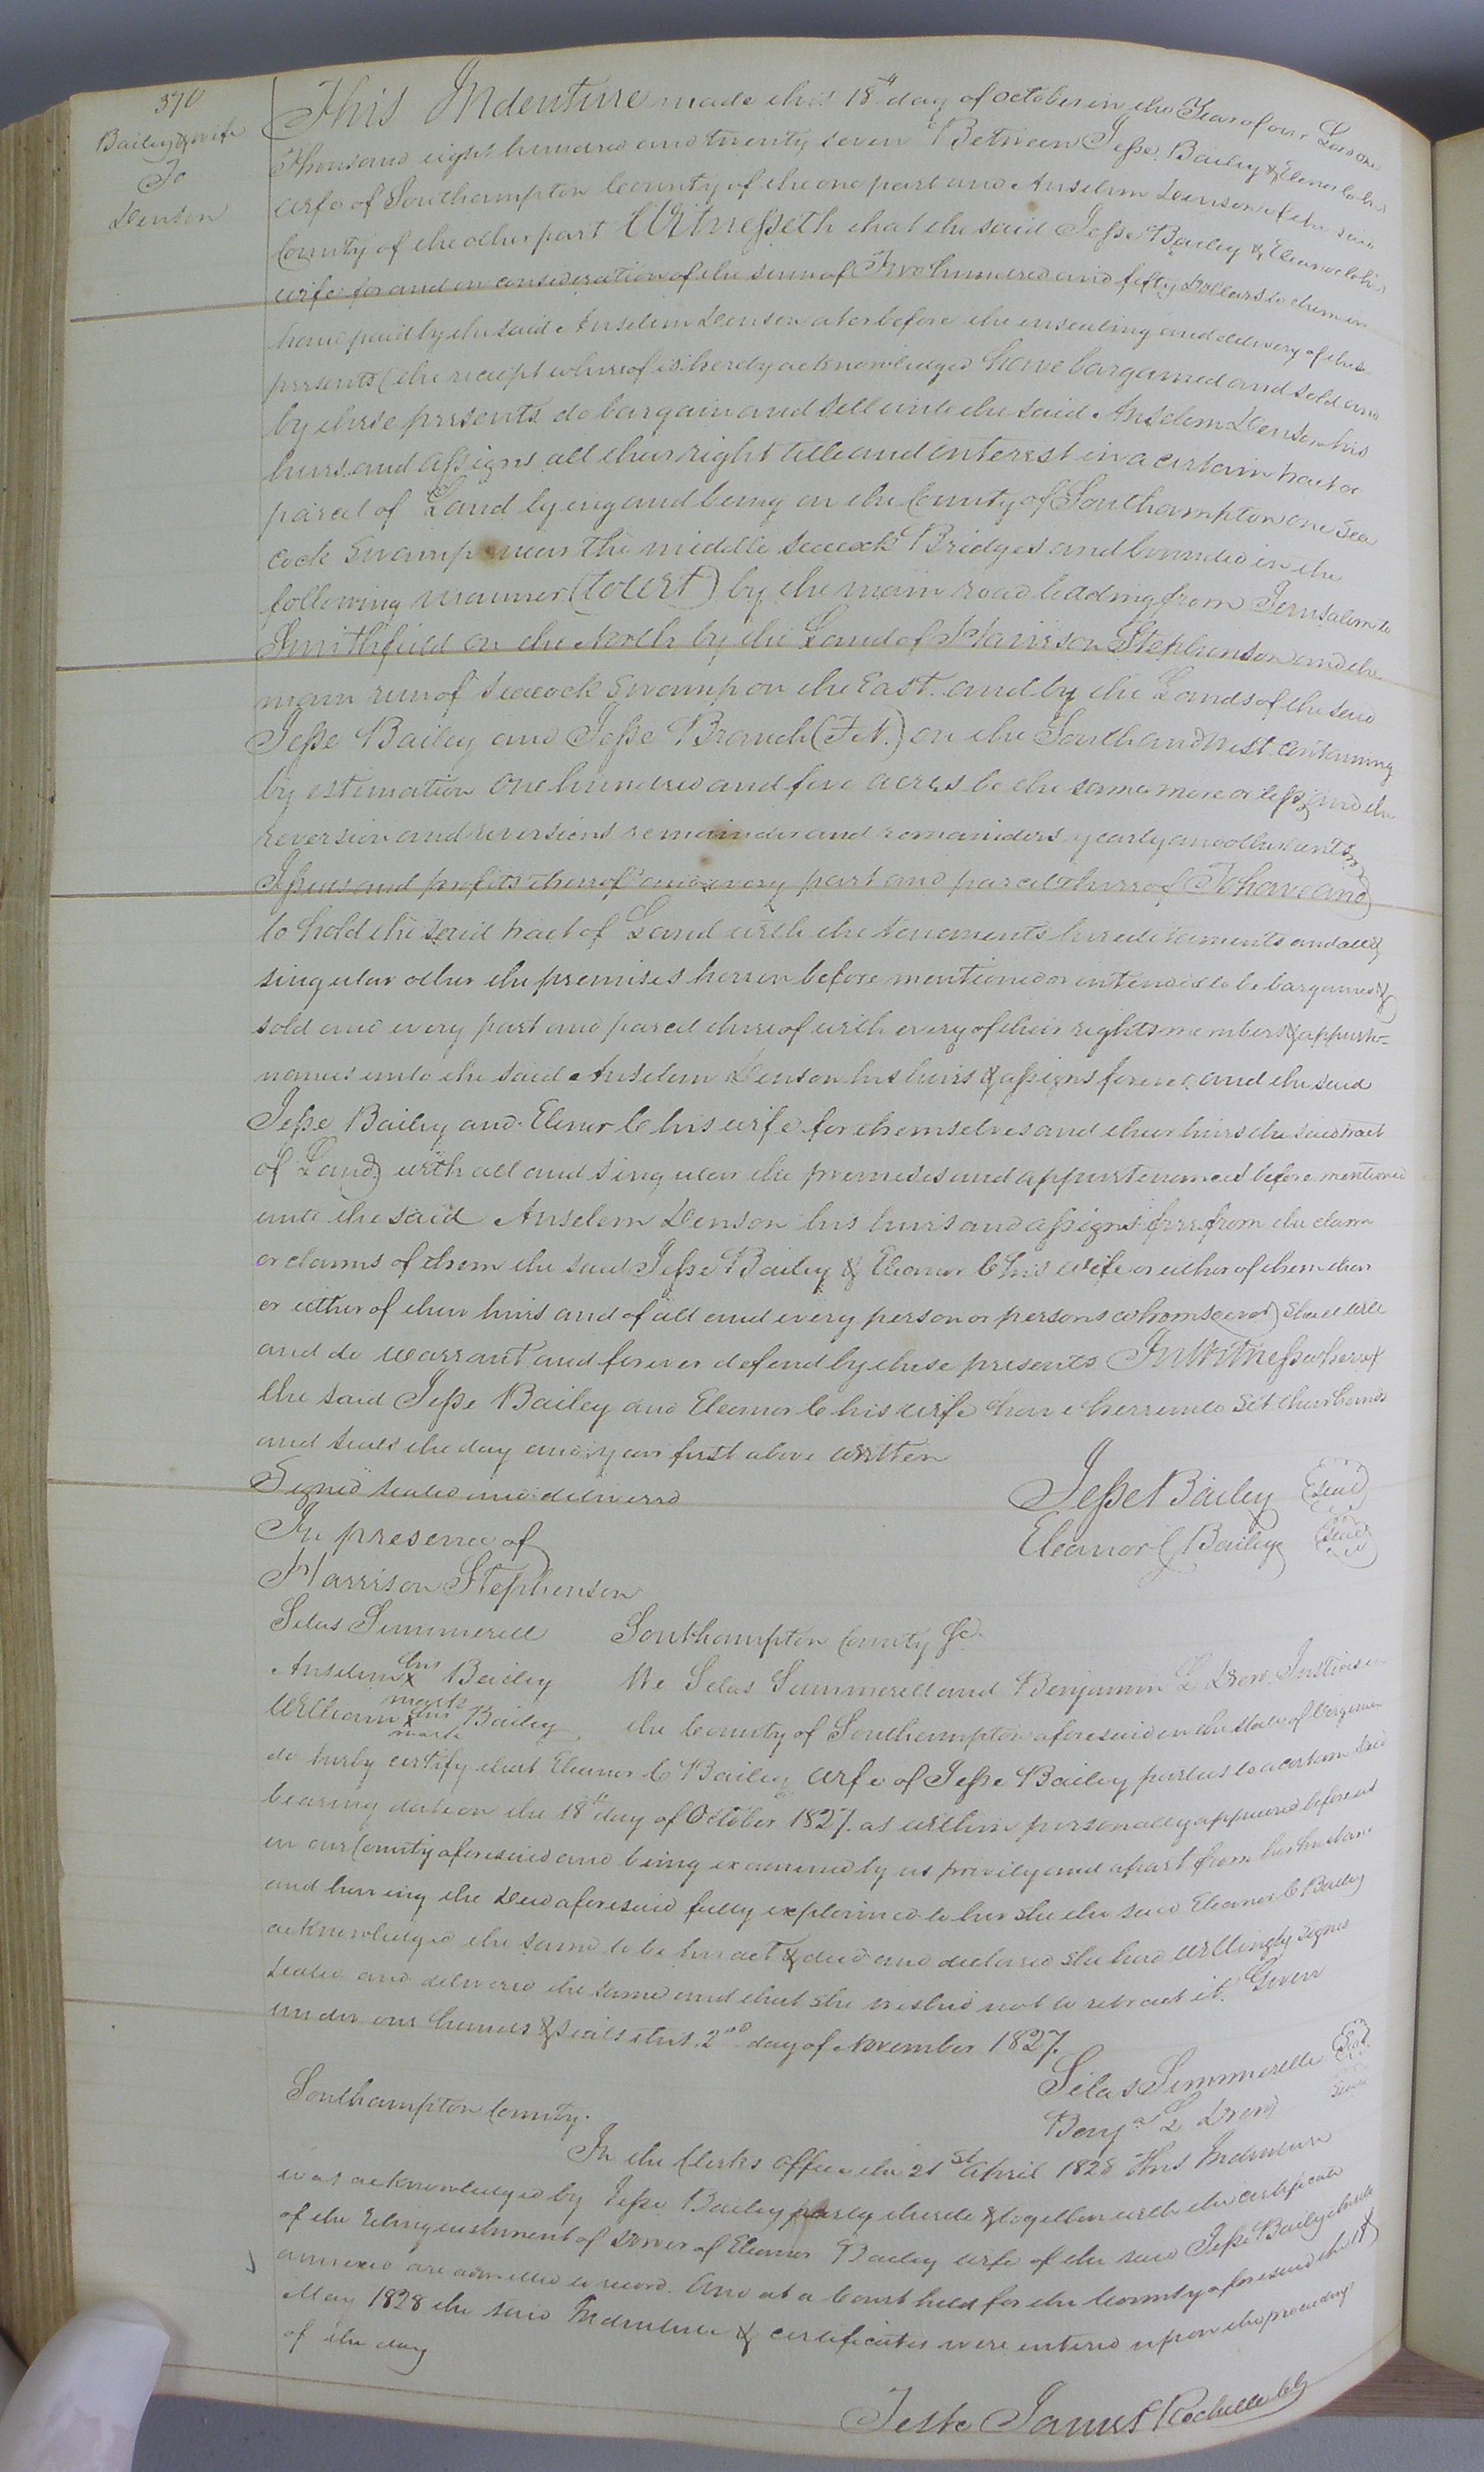 370
Bailey & wife
To
Denson
This Indenture made this 18th day of october in the Year of our Lord one
Thousand eight hundred and twenty seven Between Jesse Bailey & Elenor C his
wife of Southampton County of the one part and Anselem Denson of the said
County of the other part Witnesseth that the said Jesse Bailey & Eleanor C his
wife for and in consideration of the sum of Two hundred and fifty Dollars to them in
hand paid by the said Anselem Denson at or before the ensealing and delivery of these
presents (the receipt whereof is hereby acknowledged have bargained and sold and
by these presents do bargain and sell unto the said Anselem Denson his
heirs and assigns all their right title and interest in a certain tract or
parcel of Land lying and being in the County of Southampton one Sea
cock Swamp near the middle Seacock Bridges and bounded in the
following manner (towit) by the main road leading from Jerusalem to
Smithfield on the North by the Land of Harrison Stephenson and the
main run of Seacock Swamp on the East and by the Lands of the said
Jesse Bailey and Jesse Branch (F.N.) on the South and West containing
by estimation one hundred and five acres be the same more or less and the
reversion and reversions remainder and remainders yearly and other rents
Issues and profits thereof and every part and parcel thereof To have and
to hold the said tract of Land with the tenaments hereditaments and all &
singular other the premises herein before mentioned or intended to be bargained &
sold and every part and parcel thereof with every of their rights members & appurte=
nances unto the said Anselem Denson his heirs & assigns forever and the said
Jesse Bailey and Elenor C his wife for themselves and their heirs the said tract
of Land with all and singular the premises and appurtenances before mentioned
unto the said Anselem Denson his heirs and assigns free from the claim
or claims of them the said Jesse Bailey & Eleanor C his wife or either of them their
or either of their heirs and of all and every person or persons whomsoever shall will
and do warrant and forever defend by these presents In Witness whereof
the said Jesse Bailey and Eleanor C his wife have hereunto set their hands
and seals the day and year first above written
Signed sealed and delivered
In presence of
Jesse Bailey Seal
Eleanor C Bailey Seal
Harrison Stephenson
Silas Summerell
Anselem his x mark Bailey
William his x mark Bailey
Southampton County Sc.
We Silas Summerell and Benjamin L Drew Justices in
the County of Southampton aforesaid in the State of Virginia
do hereby certify that Eleanor C Bailey wife of Jesse Bailey parties to a certain deed
bearing date on the 18th day of October 1827. as within personally appeared before us
in our County aforesaid and being examined by us privily and apart from her husband
and having the Deed aforesaid fully explained to her she the said Eleanor C Bailey
acknowledged the same to be her act & deed and declared she had willingly signed
sealed and delivered the same and that she wished not to retract it. Given
under our hands & seals this 2nd day of November 1827.
Silas Summerelle Seal
Benja L Drew Seal
Southampton County.
In the Clerks Office the 21st April 1828 This Indenture
was acknowledged by Jesse Bailey party thereto & together with the certificate
of the relinquishment of Dower of Eleanor Bailey wife of the said Jesse Bailey thereto
annexed are admitted to record. And at a Court held for the County aforesaid the
May 1828 the said Indenture & certificates were entered upon the proceedings
of the day
Teste James Rochelle Clk